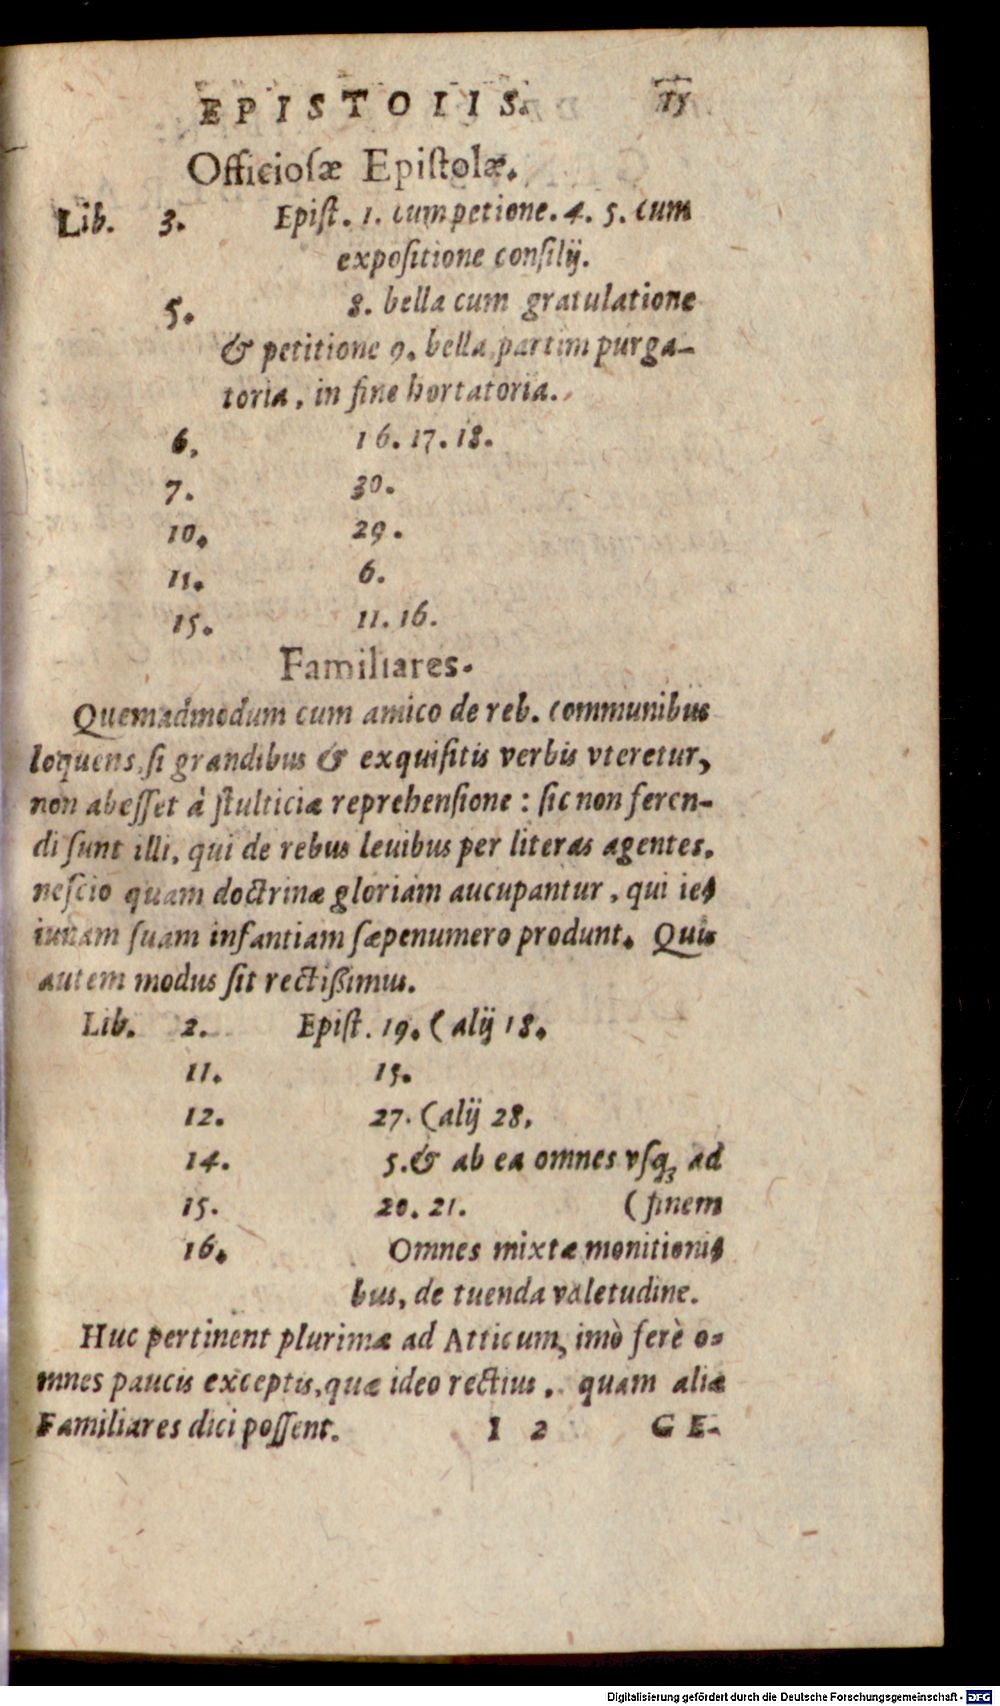 EPISTOLIS. 15
Officiosæ Epistolæ.
Lib. 3. Epiſt. 1. cum petione. 4. 5. cum
expoſitione conſilij.
5. 8. bella cum gratulatione
& petitione 9. bella partim purga-
toria, in fine hortatoria.
6. 16. 17. 18.
7. 30.
10. 29.
11. 6.
15. 11. 16.
Familiares.
Quemadmodum cum amico de reb. communibus
loquens, ſi grandibus & exquiſitis verbis vteretur,
non abeſſet à ſtulticiæ reprehenſione: ſic non feren-
di ſunt illi, qui de rebus leuibus per literas agentes,
neſcio quam doctrinæ gloriam aucupantur, qui ie-
iunam ſuam infantiam ſæpenumero produnt. Quis
autem modus ſit rectißimus.
Lib. 2. Epiſt. 19. (alij 18.
11. 15.
12. 27. (alij 28.
14. 5. & ab ea omnes vſq; ad
15. 20. 21. (finem
16. Omnes mixtæ monitioni-
bus, de tuenda valetudine.
Huc pertinent plurimæ ad Atticum, imò ferè o-
mnes paucis exceptis, quæ ideo rectius, quam aliæ
Familiares dici poſſent. I 2 GE-
Digitalisierung gefördert durch die Deutsche Forschungsgemeinschaft - DFG